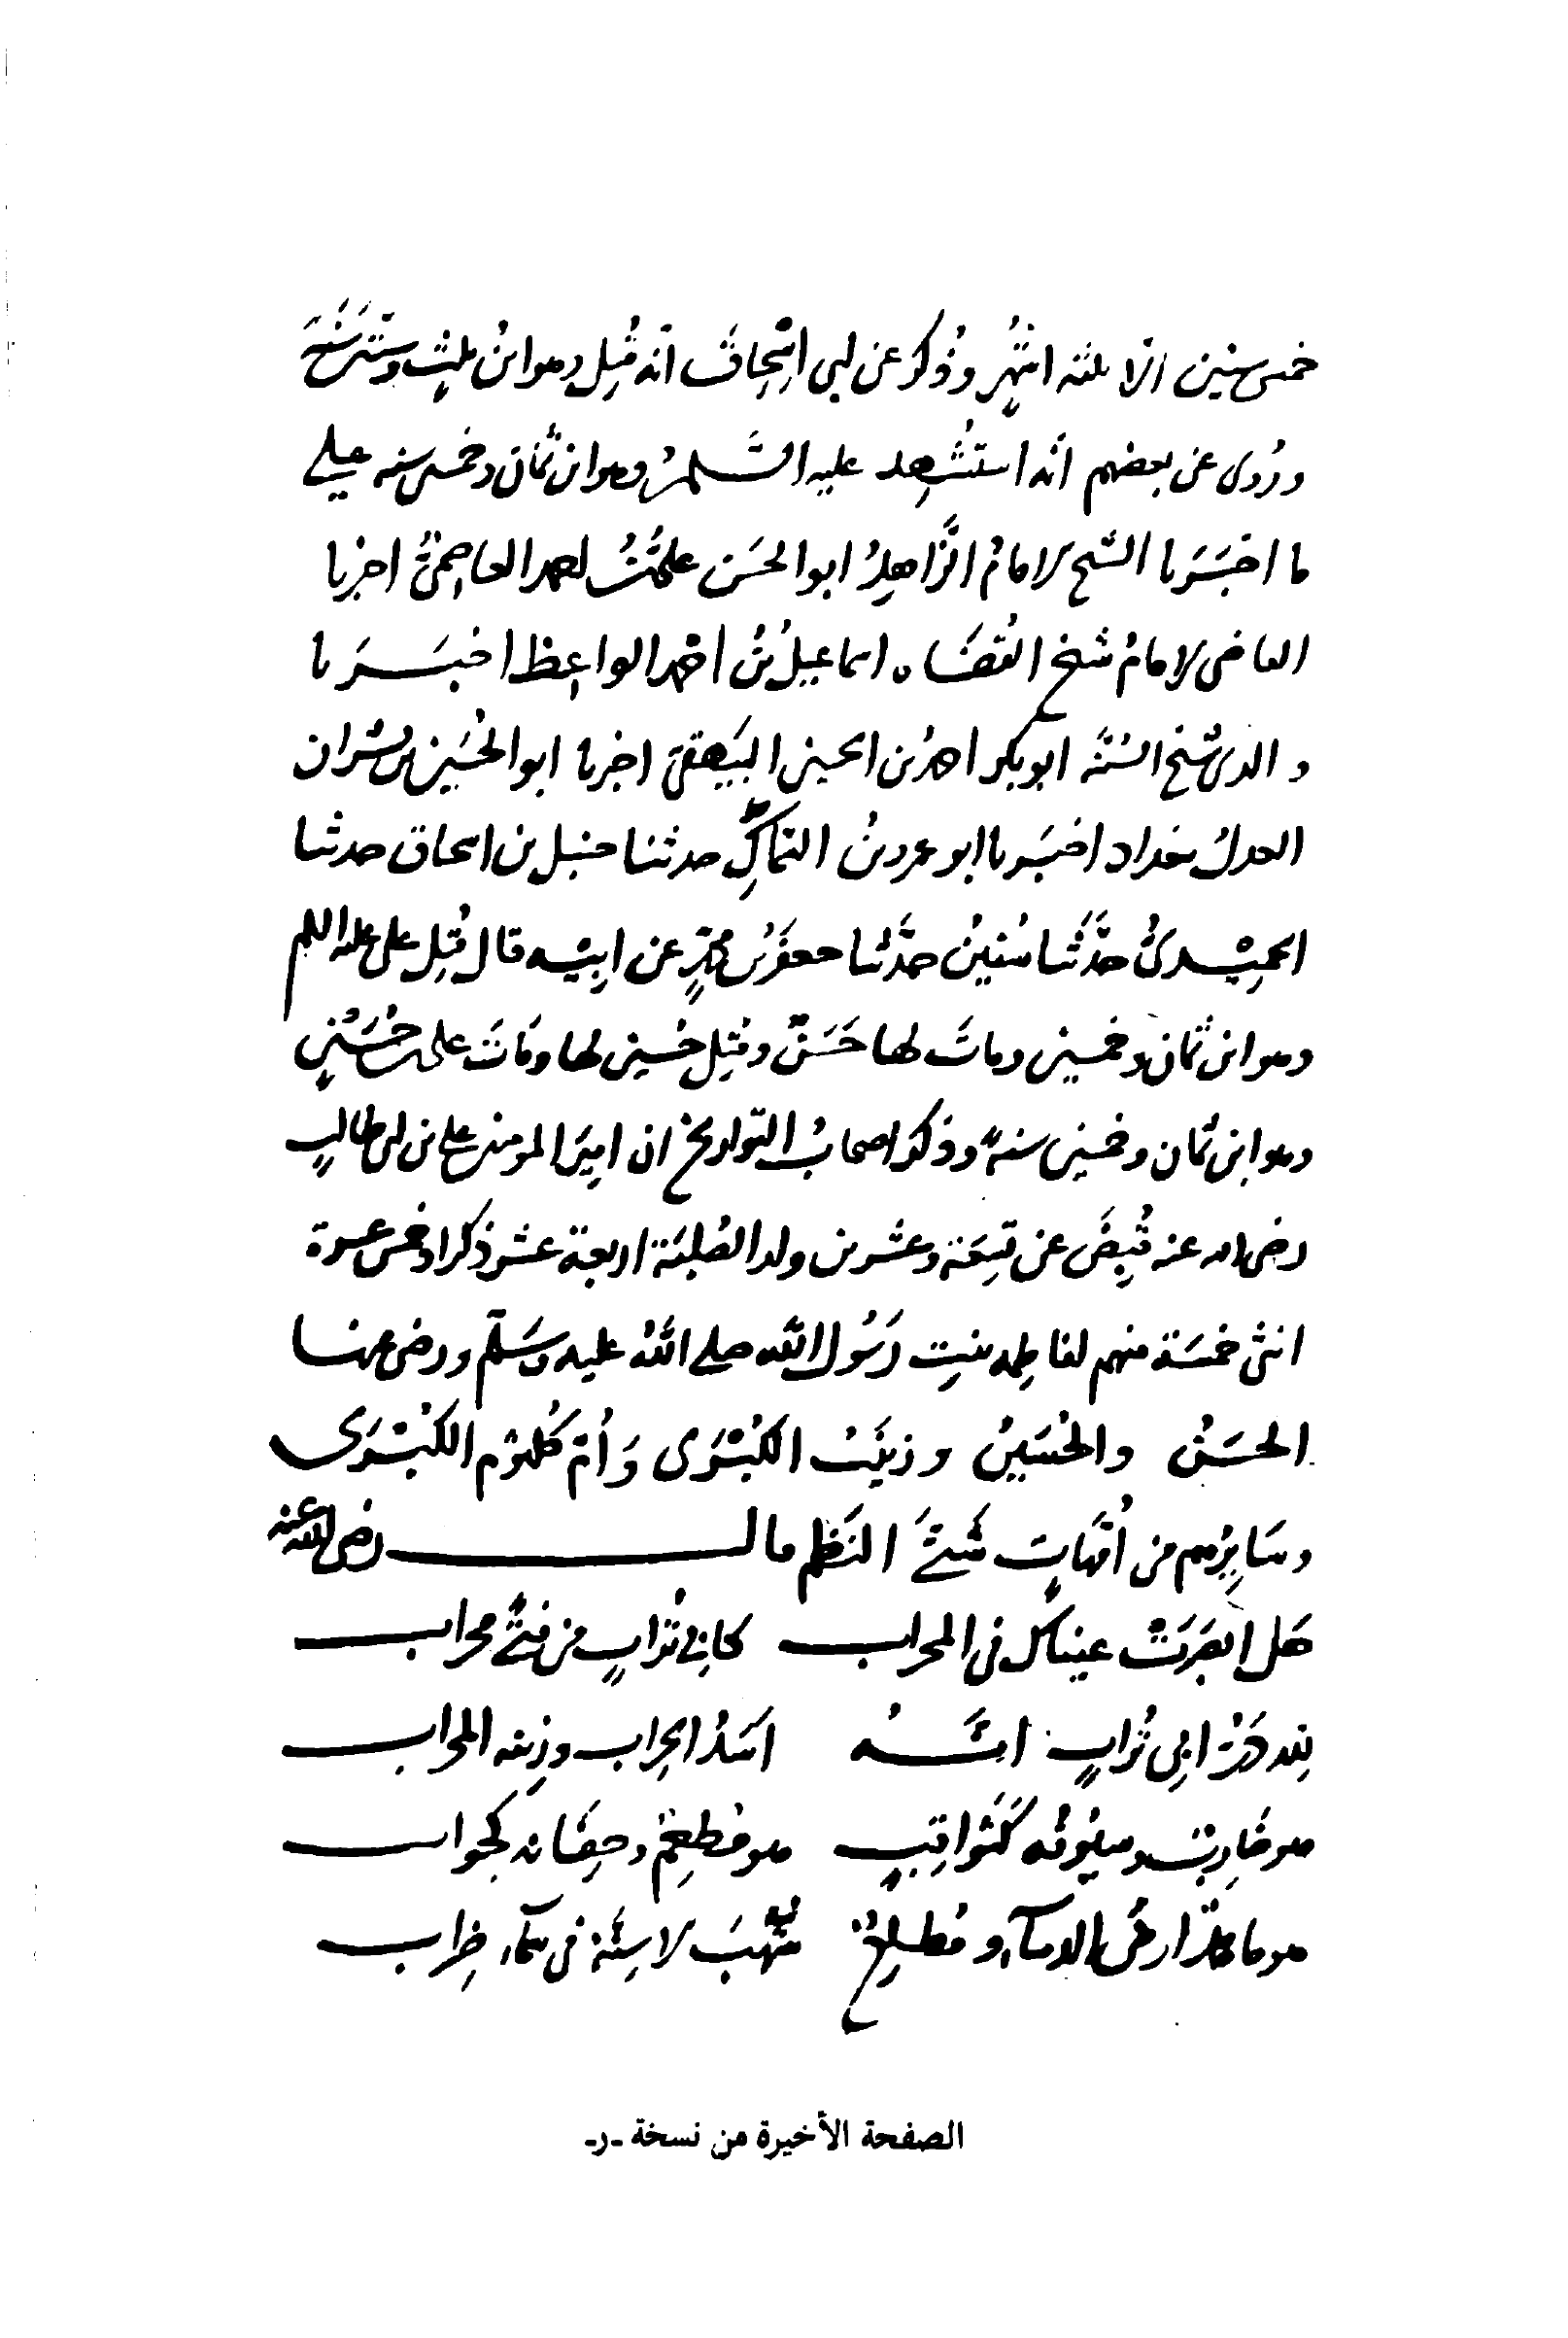 خمس سنين الا ثلثة اشهر وذُكر عن ابي اسحاق انه قُتِل وهو ابن ثلثٍ وستين سَنَة
ورُوى عن بعضهم انه استُشهِد عليه السَّلمُ وهو ابن ثمان وخمسين سنه على
ما اخبَرَنا الشيخ الامامُ الزَّاهِدُ ابو الحسَن على بنُ احمد العاصِمىُّ اخبرنا
القاضى الامامُ شيخ القُضَاه اسماعيلُ بنُ احمد الواعِظ اخبَرَنا
والدى شيخ السُنَّه ابوبكر احمدُ بن الحسين البَيهقىّ اخبرنا ابو الحُسَين بن بشران
العدلُ ببغداد اخبَرنا ابو عمرو بنُ السَّماكِ حدثنا حنبل بن اسحاق حدثنا
الحُمَيْدىُّ حدَّثنا سُفينُ حدَّثنا جعفرُ بن محمَّدٍ عن ابِيْه قال قُتِل على عليه السلم
وهو ابن ثمان وخمسين وماتَ لها حَسَنٌ وقُتِل حُسين لها ومَاتَ على بن حُسَيْنٍ
وهو ابن ثمان وخمسين سنةً وذكر اصحابُ التواريخ ان اميرَ المومنين على بن ابى طالبٍ
رضى الله عنه قُبِضَ عن تِسعَة وعشرين ولدا لصُلبِه اربعة عشر ذكرا وخمس عشرة
انثى خمسَة منهم لفاطِمه بنتِ رَسُول الله صلى اللهُ عليه وسَلَّم ورضى عنها
الحسَنُ والحُسَينُ وزينَبُ الكُبْرَى وَأُمّ كُلثوم الكُبْرَى
وسَايِرُهم من أُمَّهاتٍ شَتَّى النَظم قال رضى الله عنه
هَل ابصَرَتْ عيناك فى المحراب كابِى تُرابٍ من فتًى محراب
لِلهِ دَرُّ ابِى تُرابٍ انَّهُ اَسَدُ الحِراب وزينه المحراب
هو ضَارِبٌ وسيُوفُه كَثَواقِبٍ هو مُطعِمٌ وجِفَانه كجواب
هو ماهدٌ ارضَ الدماءِ ومُطلِعٌ شُهُبَ الاسِنَّة فى سَمآءِ ضِراب
الصفحة الأخيرة من نسخة -ر-